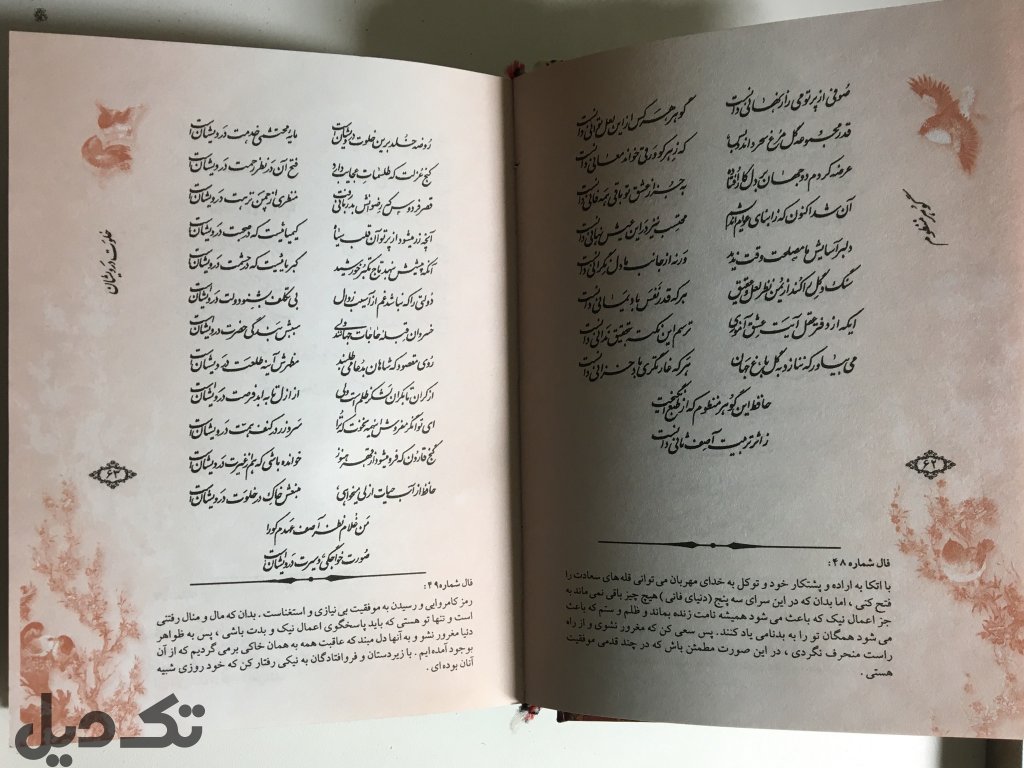 گوهر منظوم
صوفی از پرتو می راز نهانی دانست گوهر هر کس از این لعل توانی دانست
قدر مجموعه گل مرغ سحر داند و بس که نه هر کو ورقی خواند معانی دانست
عرضه کردم دو جهان بر دل کار افتاده به جز از عشق تو باقی همه فانی دانست
آن شد اکنون که ز ابنای عوام اندیشم محتسب نیز در این عیش نهانی دانست
دلبر آسایش ما مصلحت وقت ندید ورنه از جانب ما دل نگرانی دانست
سنگ و گل را کند از یمن نظر لعل و عقیق هر که قدر نفس باد یمانی دانست
ایکه از دفتر عقل آیت عشق آموزی ترسم این نکته به تحقیق ندانی دانست
می بیاور که ننازد به گل باغ جهان هر که غارتگری باد خزانی دانست
حافظ این گوهر منظوم که از طبع انگیخت
ز اثر تربیت آصف ثانی دانست
۶۲
فال شماره ۴۸ :
با اتکا به اراده و پشتکار خود و توکل به خدای مهربان می توانی قله های سعادت را
فتح کنی ، اما بدان که در این سرای سه پنج (دنیای فانی) هیچ چیز باقی نمی ماند به
جز اعمال نیک که باعث می شود همیشه نامت زنده بماند و ظلم و ستم که باعث
می شود همگان تو را به بدنامی یاد کنند . پس سعی کن که مغرور نشوی و از راه
راست منحرف نگردی ، در این صورت مطمئن باش که در چند قدمی موفقیت
هستی .
خلوت درویشان
روضه خلد برین خلوت درویشان است مایه محتشمی خدمت درویشان است
کنج عزلت که طلسمات عجایب دارد فتح آن در نظر رحمت درویشان است
قصر فردوس که رضوانش به دربانی رفت منظری از چمن نزهت درویشان است
آنچه زر می شود از پرتو آن قلب سیاه کیمیائیست که در صحبت درویشان است
آنکه پیشش بنهد تاج تکبر خورشید کبریائیست که در حشمت درویشان است
دولتی را که نباشد غم از آسیب زوال بی تکلف بشنو دولت درویشان است
خسروان قبله حاجات جهانند ولی سببش بندگی حضرت درویشان است
روی مقصود که شاهان به دعا می طلبند مظهرش آینه طلعت درویشان است
از کران تا به کران لشکر ظلم است ولی از ازل تا به ابد فرصت درویشان است
ای توانگر مفروش این همه نخوت که تو را سر و زر در کنف همت درویشان است
گنج قارون که فرو میشود از قهر هنوز خوانده باشی که هم از غیرت درویشان است
حافظ ار آب حیات ازلی میخواهی منبعش خاک در خلوت درویشان است
من غلام نظر آصف عهدم کو را
صورت خواجگی و سیرت درویشان است
۶۳
فال شماره ۴۹ :
رمز کامروایی و رسیدن به موفقیت بی نیازی و استغناست . بدان که مال و منال رفتنی
است و تنها تو هستی که باید پاسخگوی اعمال نیک و بدت باشی ، پس به ظواهر
دنیا مغرور نشو و به آنها دل مبند که عاقبت همه به همان خاکی بر می گردیم که از آن
بوجود آمده ایم . با زیردستان و فروافتادگان به نیکی رفتار کن که خود روزی شبیه
آنان بوده ای .
تک میل